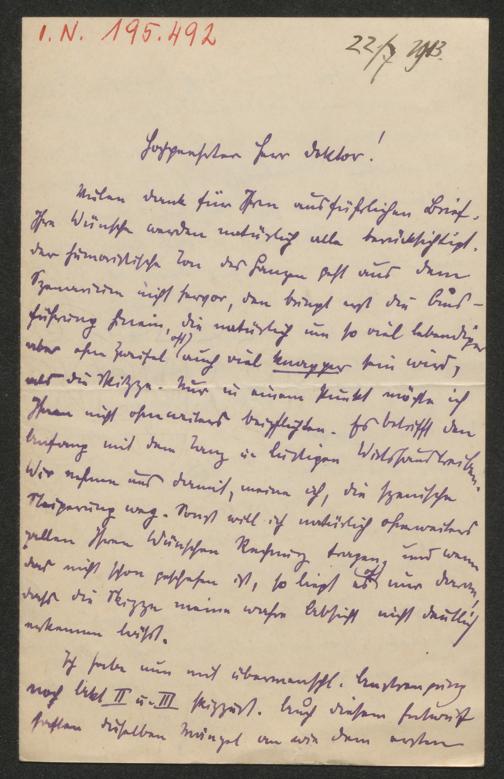 I. N. 195.492
22/7 1913.
Hochgeehrter Herr Doktor!
Vielen Dank für Ihren ausführlichen Brief.
Ihre Wünsche werden natürlich alle berücksichtigt.
Der humoristische Ton des Ganzen geht aus dem
Szenarium nicht hervor, den bringt erst die Aus-
führung hinein, die natürlich um so viel lebendiger
aber ohne Zweifel oft auch viel knapper sein wird,
als die Skizze. Nur in einem Punkt möchte ich
Ihnen nicht ohneweiters beipflichten. Es betrifft den
Anfang mit dem Tanz u. lustigen Wirtshaustreiben.
Wir nehmen uns damit, meine ich, die szenische
Steigerung weg. Sonst will ich natürlich ohneweiters
gallen Ihren Wünschen Rechnung tragen, und wenn
das nicht schon geschehen ist, so liegt es oft nur daran,
dass die Skizze meine wahre Absicht nicht deutlich
erkennen lässt.
Ich habe nun mit übermenschl. Anstrengung
noch Akt II u. III skizziert. Auch diesem Entwurf
haften dieselben Mängel an wie dem ersten